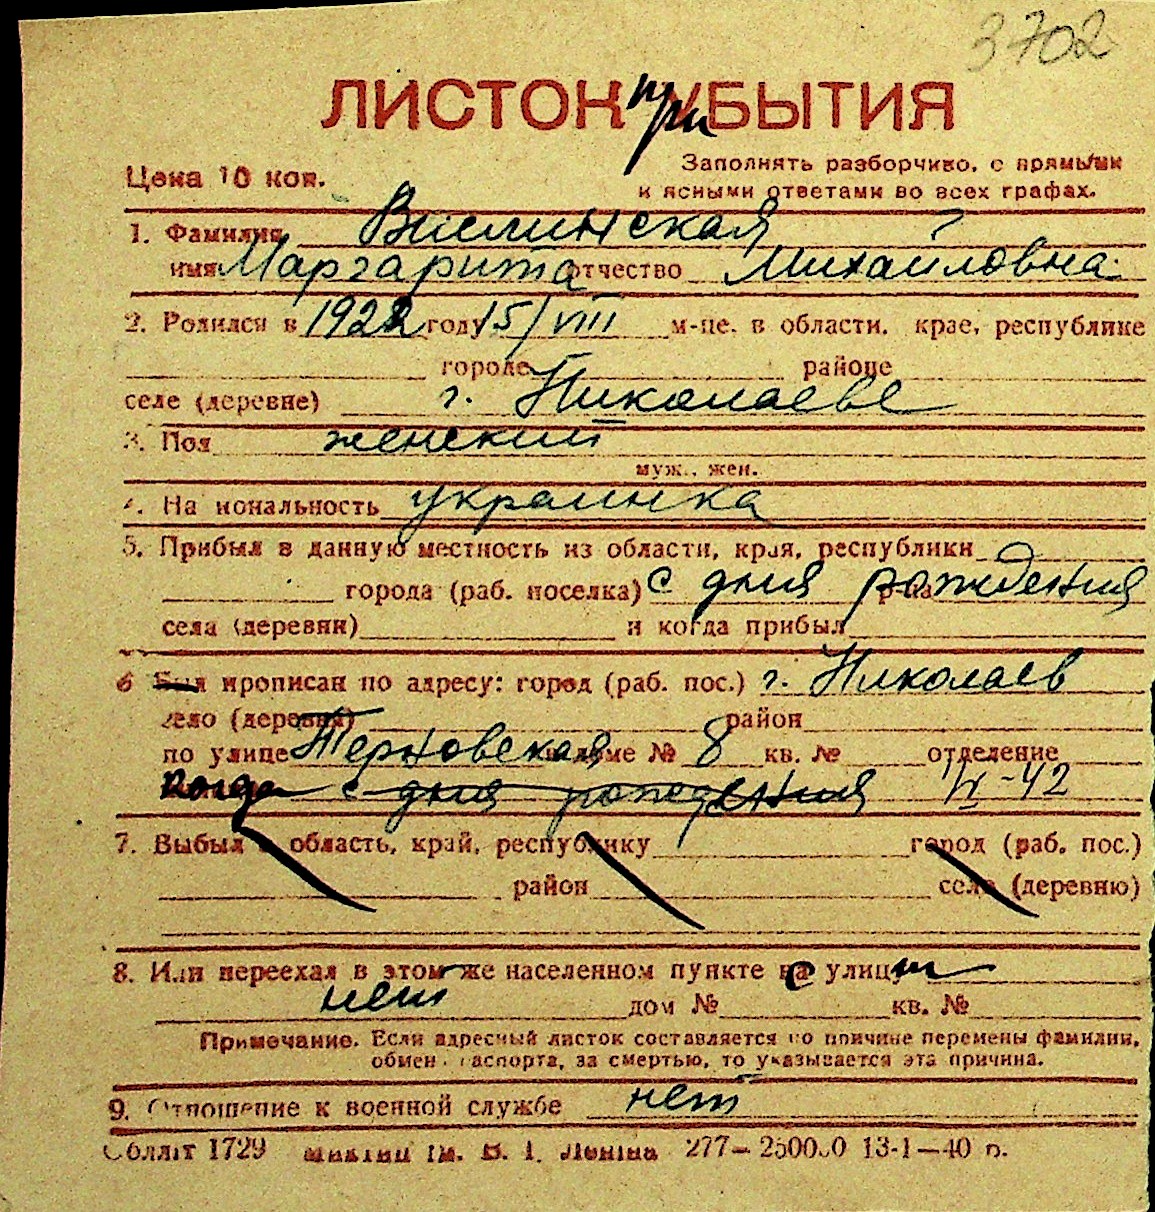 3702
ЛИСТОК при УБЫТИЯ
Цена 10 коп.
Заполнять разборчиво, с прямыми
и ясными ответами во всех графах.
1. Фамилия Вилинская
имя Маргарита отчество Михайловна
2. Родился в 1922 году 15/VIII м-це, в области, крае, республике
городе районе
селе (деревне) г. Николаеве
3. Пол женский
муж., жен.
4. Национальность украинка
5. Прибыл в данную местность из области, края, республики
города (раб. поселка) с дня рождения р-на
села (деревни) и когда прибыл
6 Был прописан по адресу: город (раб. пос.) г. Николаев
село (деревня) район
по улице Терновская в доме № 8 кв. № отделение
когда с дня рождения 1/IV-42
7. Выбыл в область, край, республику город (раб. пос.)
район село (деревню)
8. Или переехал в этом же населенном пункте с улицы
нет дом № кв. №
Примечание. Если адресный листок составляется по причине перемены фамилии,
обмен паспорта, за смертью, то указывается эта причина.
9. Отношение к военной службе нет
Обллит 1729 ім. В. І. Леніна 277—250000 13-1—40 р.